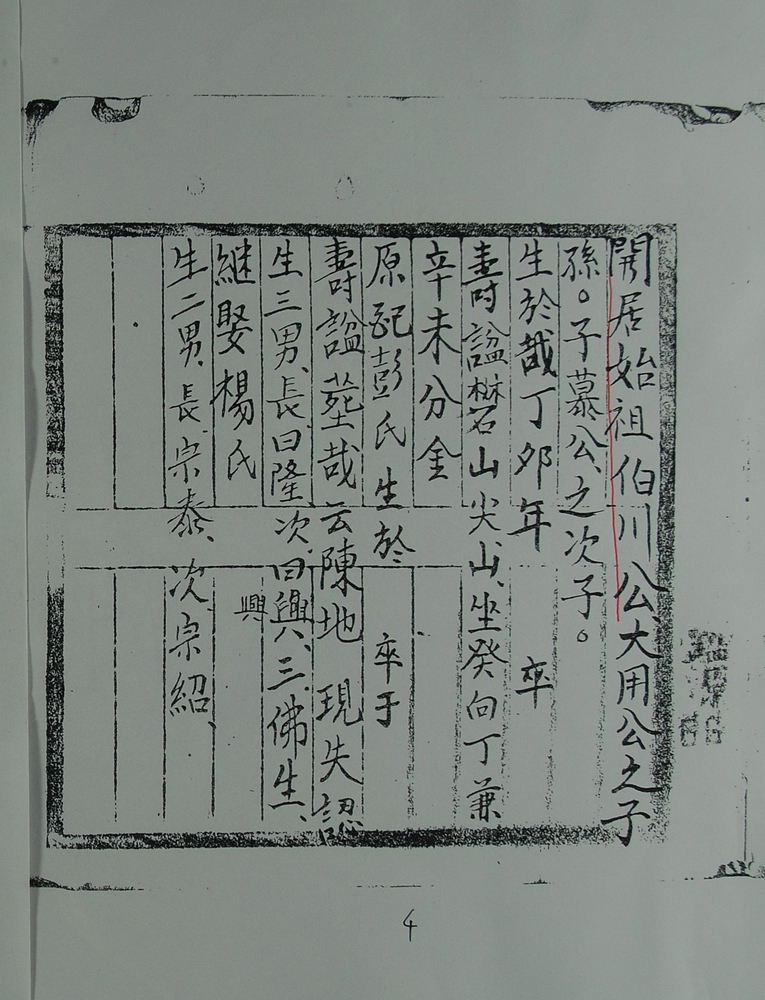 開居始祖伯川公、大用公之子
孫。子慕公、之次子。
生於哉丁夘年 卒
壽諡山尖山、坐癸向丁兼
辛未分金
原配彭氏生於 卒于
壽諡塟哉云陳地 現失認
生三男、長曰隆次、曰興、三、佛生、
興
継娶楊氏
生二男、長、宗泰、次、宗紹、
4